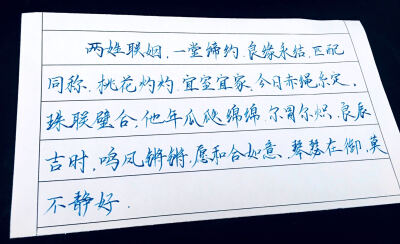 两姓联姻,一堂缔约,良缘永结,匹配
同称,桃花灼灼,宜室宜家,今日赤绳系定,
珠联璧合,他年瓜瓞绵绵,尔昌尔炽,良辰
吉时,鸣凤锵锵,愿和合如意,琴瑟在御,莫
不静好.